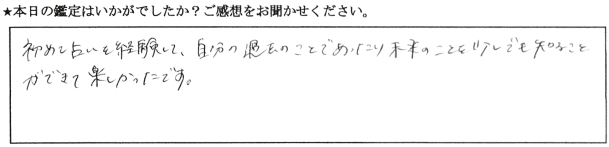 ★本日の鑑定はいかがでしたか？ご感想をお聞かせください。
初めて占いを経験して、自分の過去のことであったり未来のことを少しでも知ること
ができて楽しかったです。